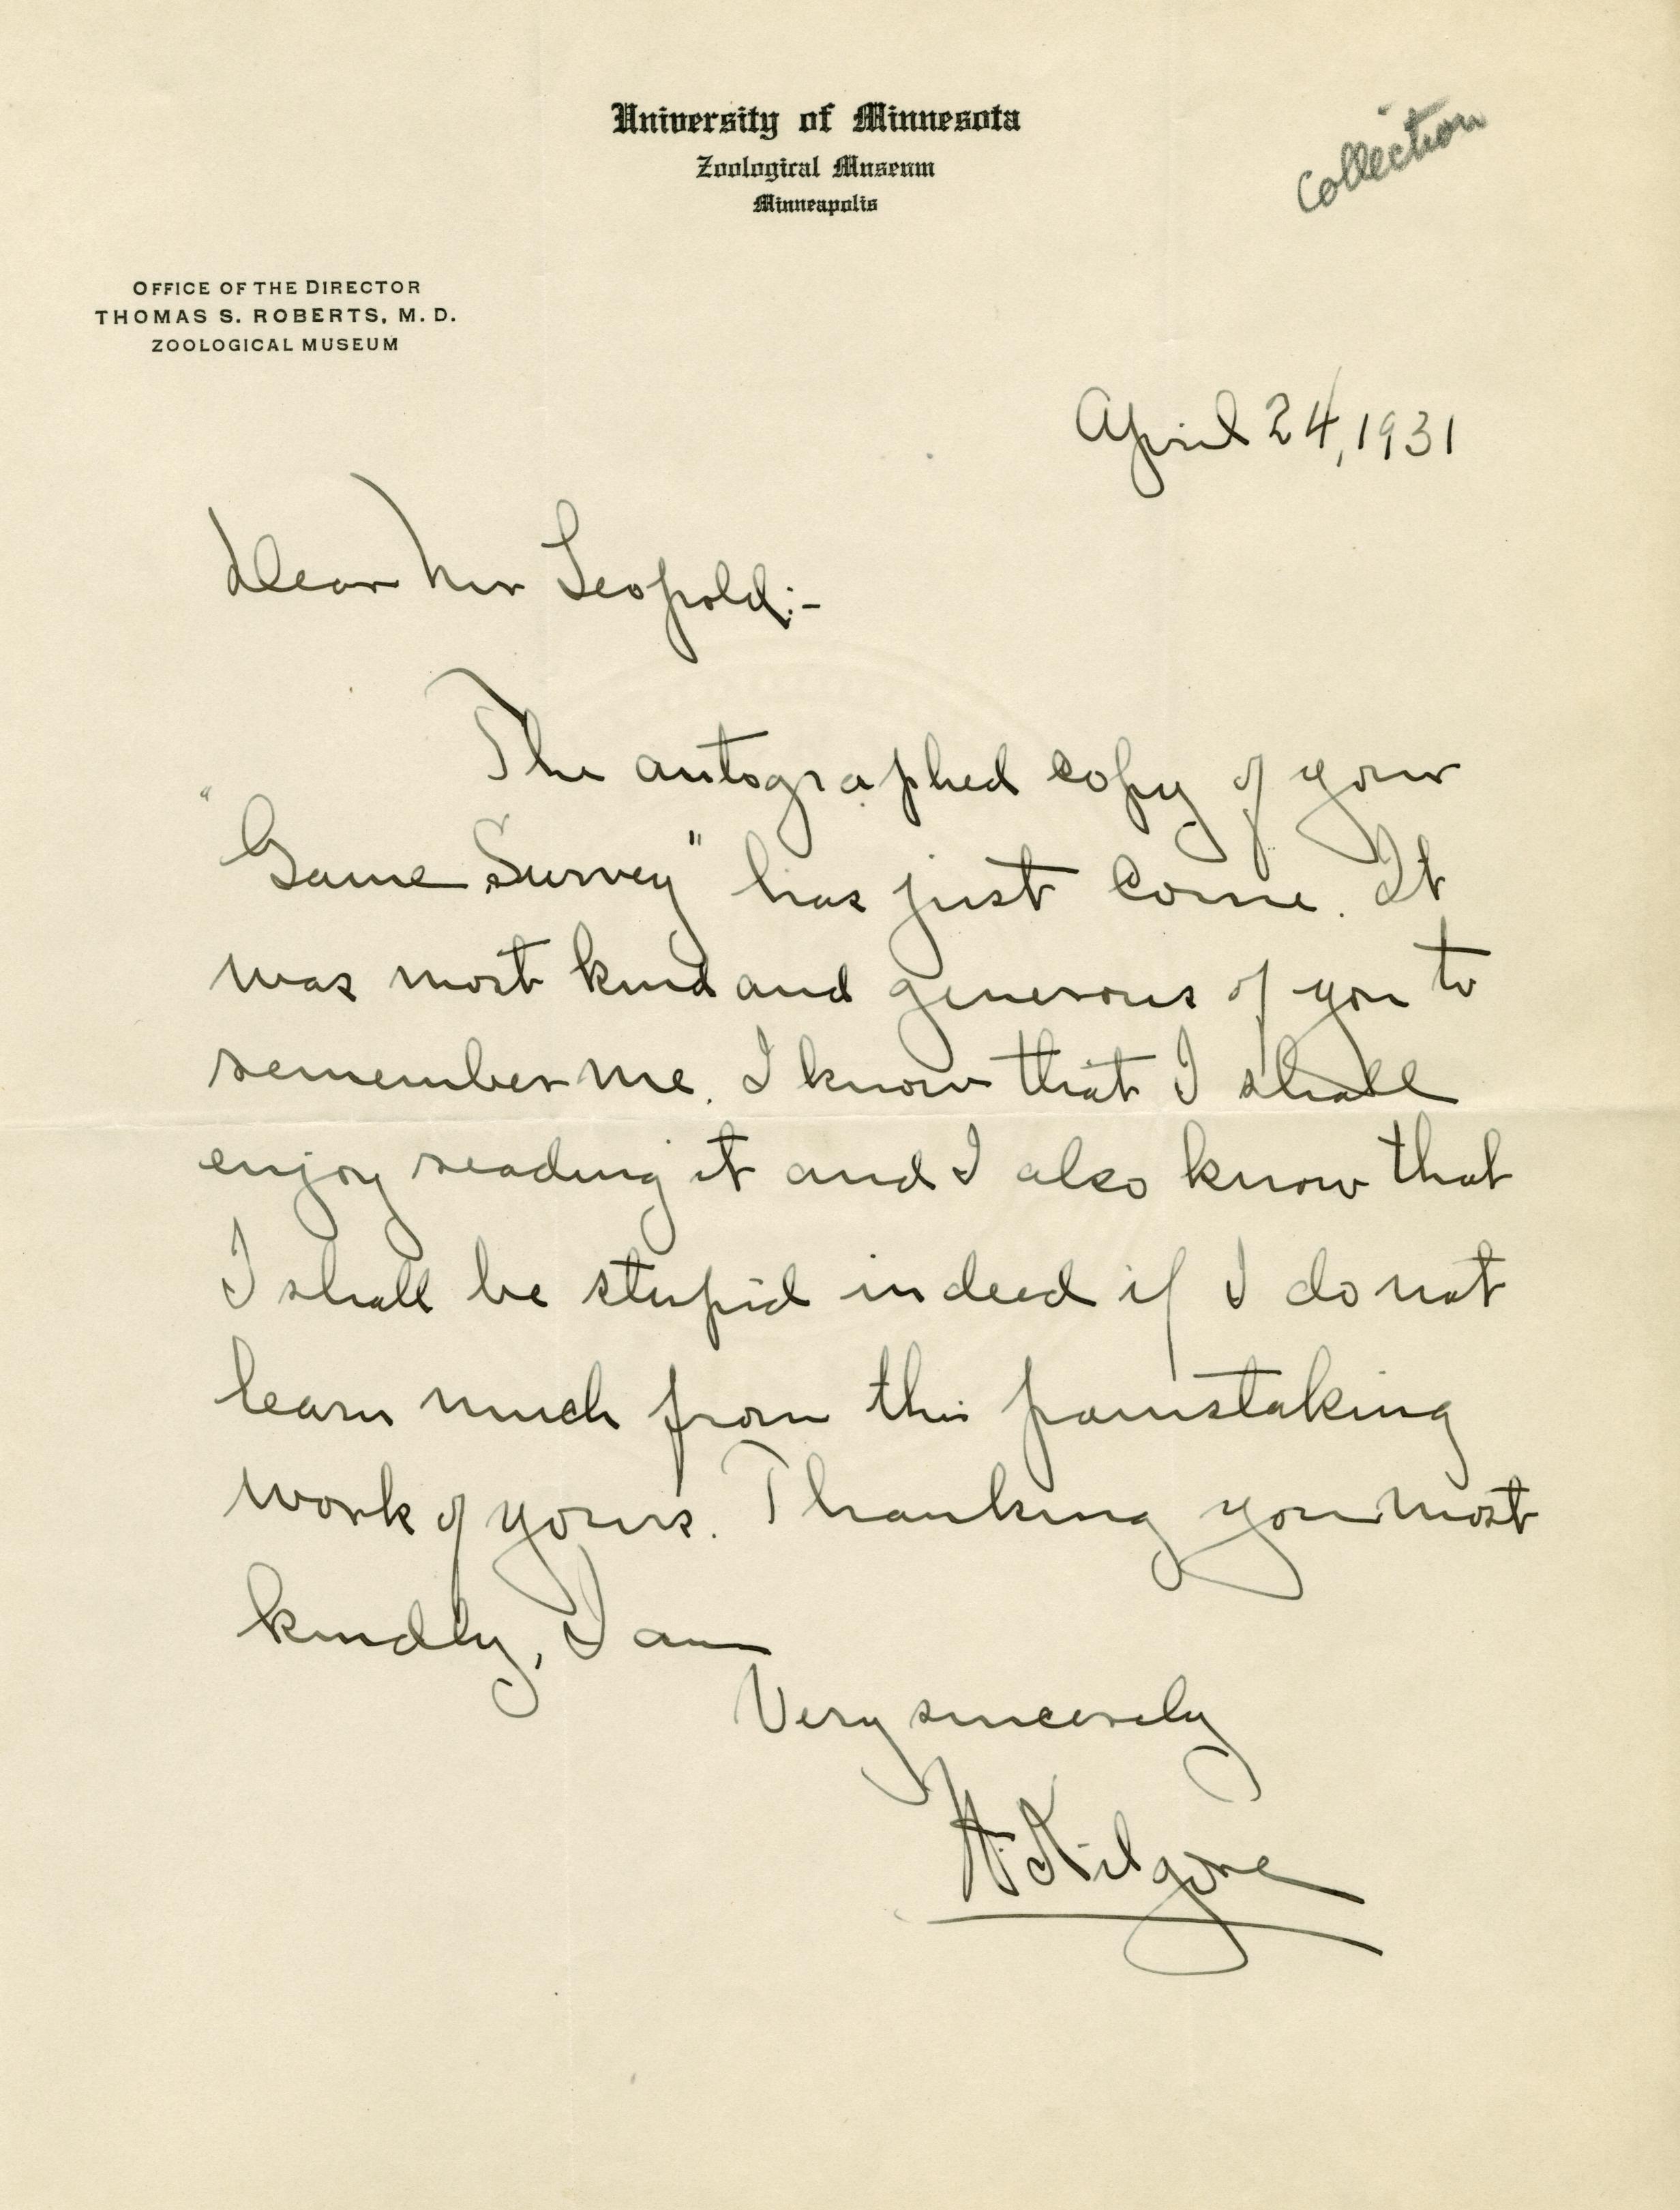 University of Minnesota
Zoological Museum
Minneapolis
Collection
OFFICE OF THE DIRECTOR
THOMAS S. ROBERTS, M. D.
ZOOLOGICAL MUSEUM
April 24, 1931
Dear Mr Leopold:-
The autographed copy of your
"Game Survey" has just come. It
was most kind and generous of you to
remember me. I know that I shall
enjoy reading it and I also know that
I shall be stupid indeed if I do not
learn much from this painstaking
work of yours. Thanking you most
kindly, I am
Very sincerely
W. Kilgore